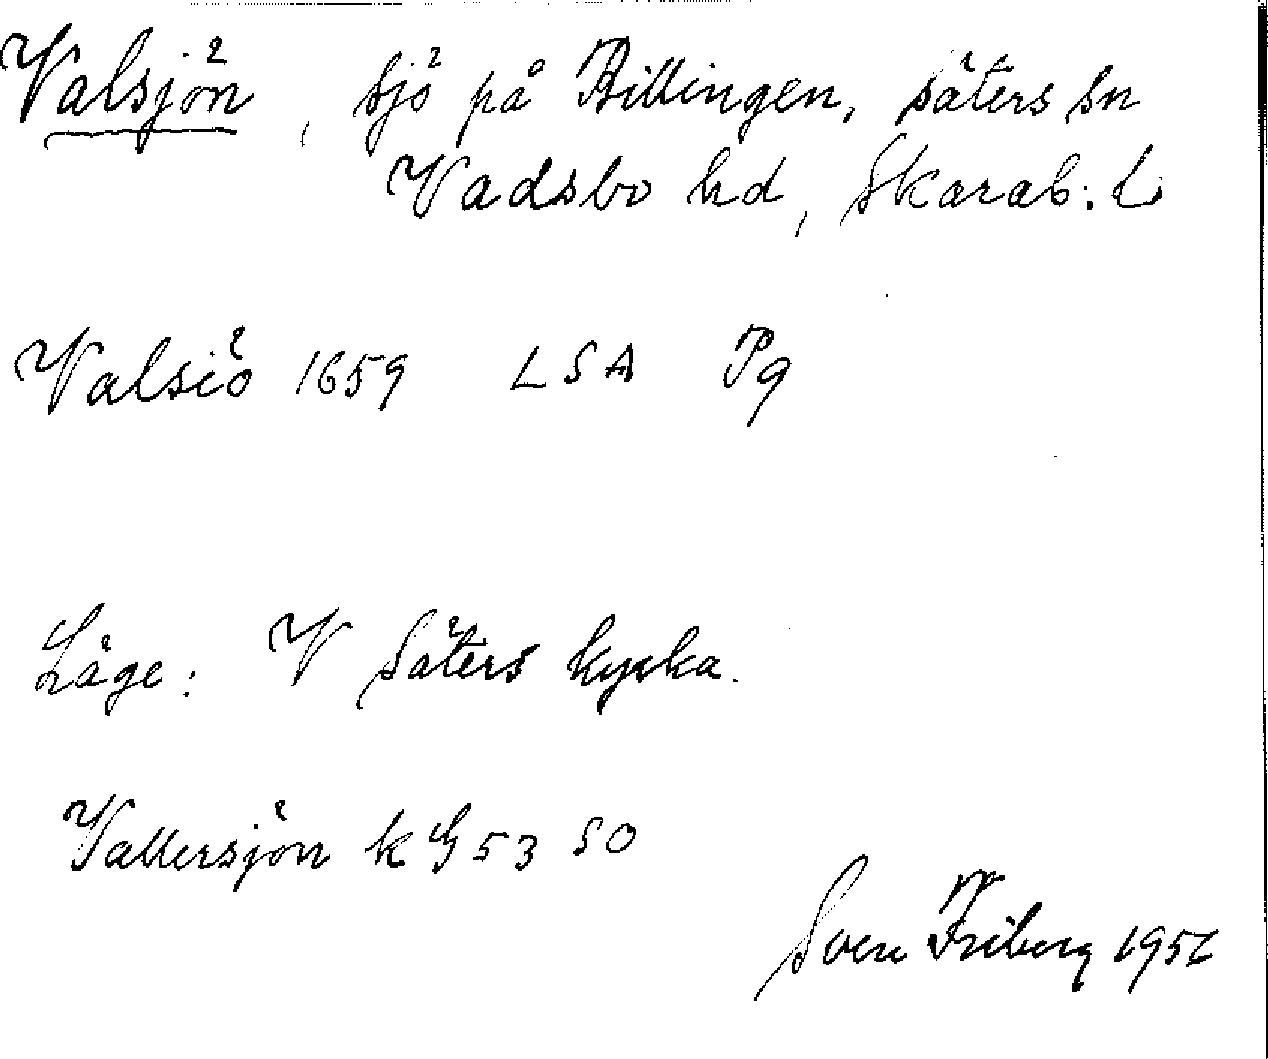 Valsjön, sjö på Billingen, Säters sn
Vadsbo hd, Skarab. l.
Valsiö 1659 LSA P9
Läge: V Säters kyrka.
Vallersjön k G 53 SO
Sven Friberg